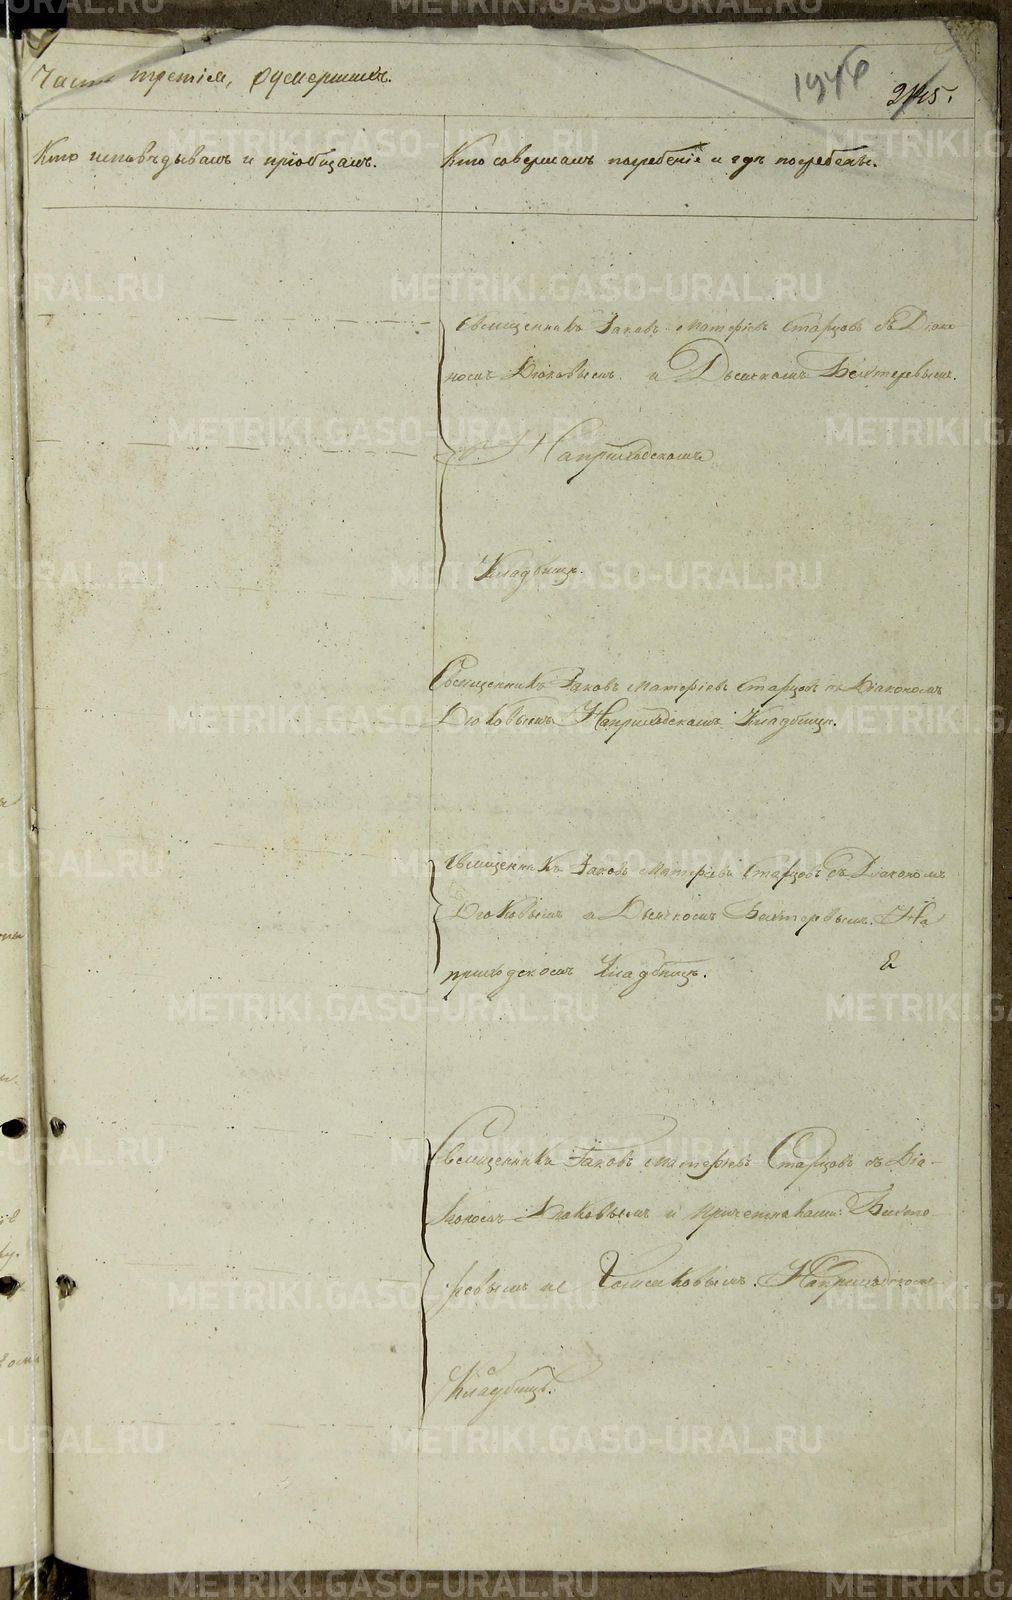 Часть третія, о умершихъ.
1946
245.
Кто исповѣдывалъ и пріобщалъ.
Кто совершалъ погребеніе и гдѣ погребены.
Священникъ Іаковъ Матфіевъ Старцовъ съ Діако
номъ Дюковымъ и Дьячкомъ Бехтеревымъ.
На приходскомъ
Кладбищѣ.
Священникъ Іаковъ Матфіевъ Старцовъ съ Діакономъ
Дюковымъ На приходскомъ Кладбищѣ.
Священникъ Іаковъ Матфіевъ Старцовъ съ Діакономъ
Дюковымъ и Дьячкомъ Бехтеревымъ. На
приходскомъ Кладбищѣ.
Священникъ Іаковъ Матфіевъ Старцовъ съ Діа-
кономъ Дюковымъ и причетниками: Бехте
ревымъ и На приходскомъ
Кладбищѣ.
METRIKI.GASO-URAL.RU